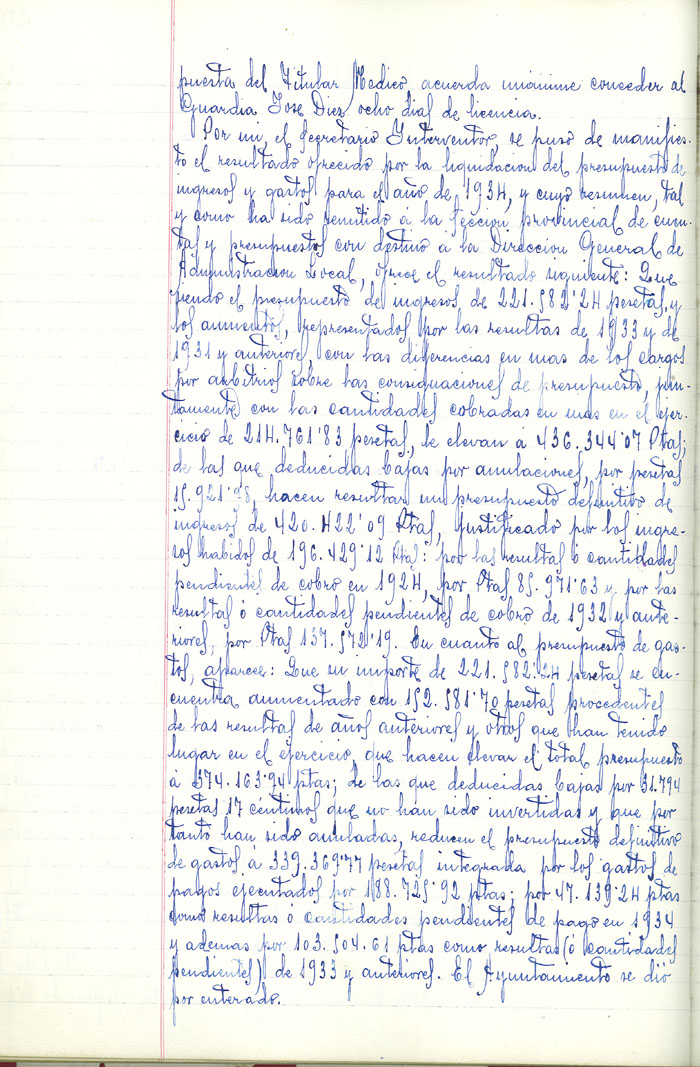 puesta del Titular Medico acuerda unánime conceder al
Guardia Jose Diez ocho dias de licencia.
Por mi, el Secretario Interventor, se puso de manifies-
to el resultado ofrecido por la liquidacion del presupuesto de
ingresos y gastos para el año de 1934, y cuyo resumen, tal
y como ha sido remitido a la Seccion provincial de cuen-
tas y presupuestos con destino a la Direccion General de
Administracion Local, ofrece el resultado siguiente: Que
siendo el presupuesto de ingresos de 221.582'24 pesetas, y
los aumentos, representados por las resultas de 1933 y de
1931 y anteriores, con las diferencias en mas de los cargos
por arbitrios sobre las consignaciones de presupuesto, jun-
tamente con las cantidades cobradas en mas en el ejer-
cicio de 214.761'83 pesetas, se elevan á 436.344'07 Ptas;
de las que deducidas bajas por anulaciones, por pesetas
15.921'98, hacen resultar un presupuesto definitivo de
ingresos de 420.422'09 Ptas, justificado por los ingre-
sos habidos de 196.429'12 Ptas: por las resultas ó cantidades
pendientes de cobro en 1924, por Ptas 85.971'63 y por las
resultas ó cantidades pendientes de cobro de 1932 y ante-
riores, por Ptas 137.572'19. En cuanto al presupuesto de gas-
tos, aparece: Que su importe de 221.582.24 pesetas se en-
cuentra aumentado con 152.581'70 pesetas procedentes
de las resultas de años anteriores y otros que han tenido
lugar en el ejercicio, que hacen elevar el total presupuesto
á 374.163'94 ptas; de las que deducidas bajas por 31.794
pesetas 17 céntimos que no han sido invertidas y que por
tanto han sido anuladas, reducen el presupuesto definitivo
de gastos á 339.369'77 pesetas integrada por los gastos de
pagos ejecutados por 188.725'92 ptas; por 47.139'24 ptas
como resultas ó cantidades pendientes de pago en 1934
y ademas por 103.504.61 ptas como resultas (ó cantidades
pendientes) de 1933 y anteriores. El Ayuntamiento se dió
por enterado.